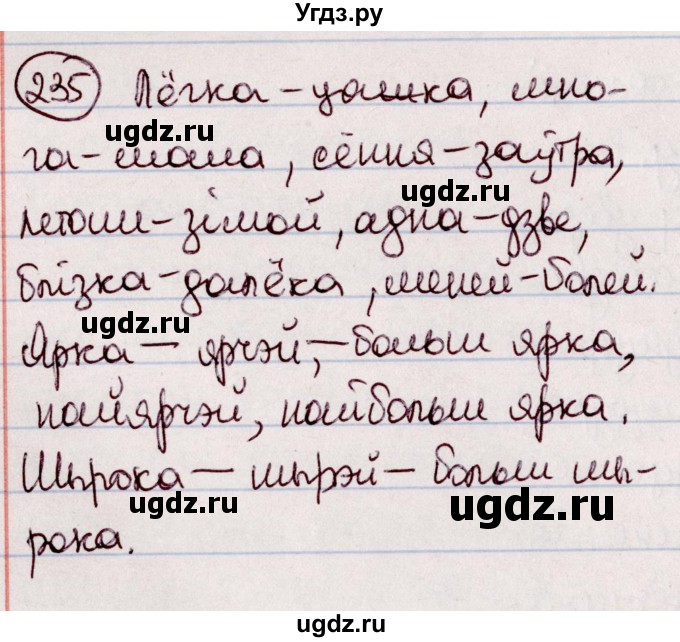 Угдз.ру
235 Лёгка – цяжка, мно-
га – мала, сёння – заўтра,
летам – зімой, адна – дзве,
блізка – далёка, меней – болей.
Ярка – ярчэй, – больш ярка,
найярчэй, найбольш ярка.
Шырока – шырэй – больш шы-
рока.
ugdz.ru
ugdz.ru
ugdz.ru
ugdz.ru
ugdz.ru
ugdz.ru